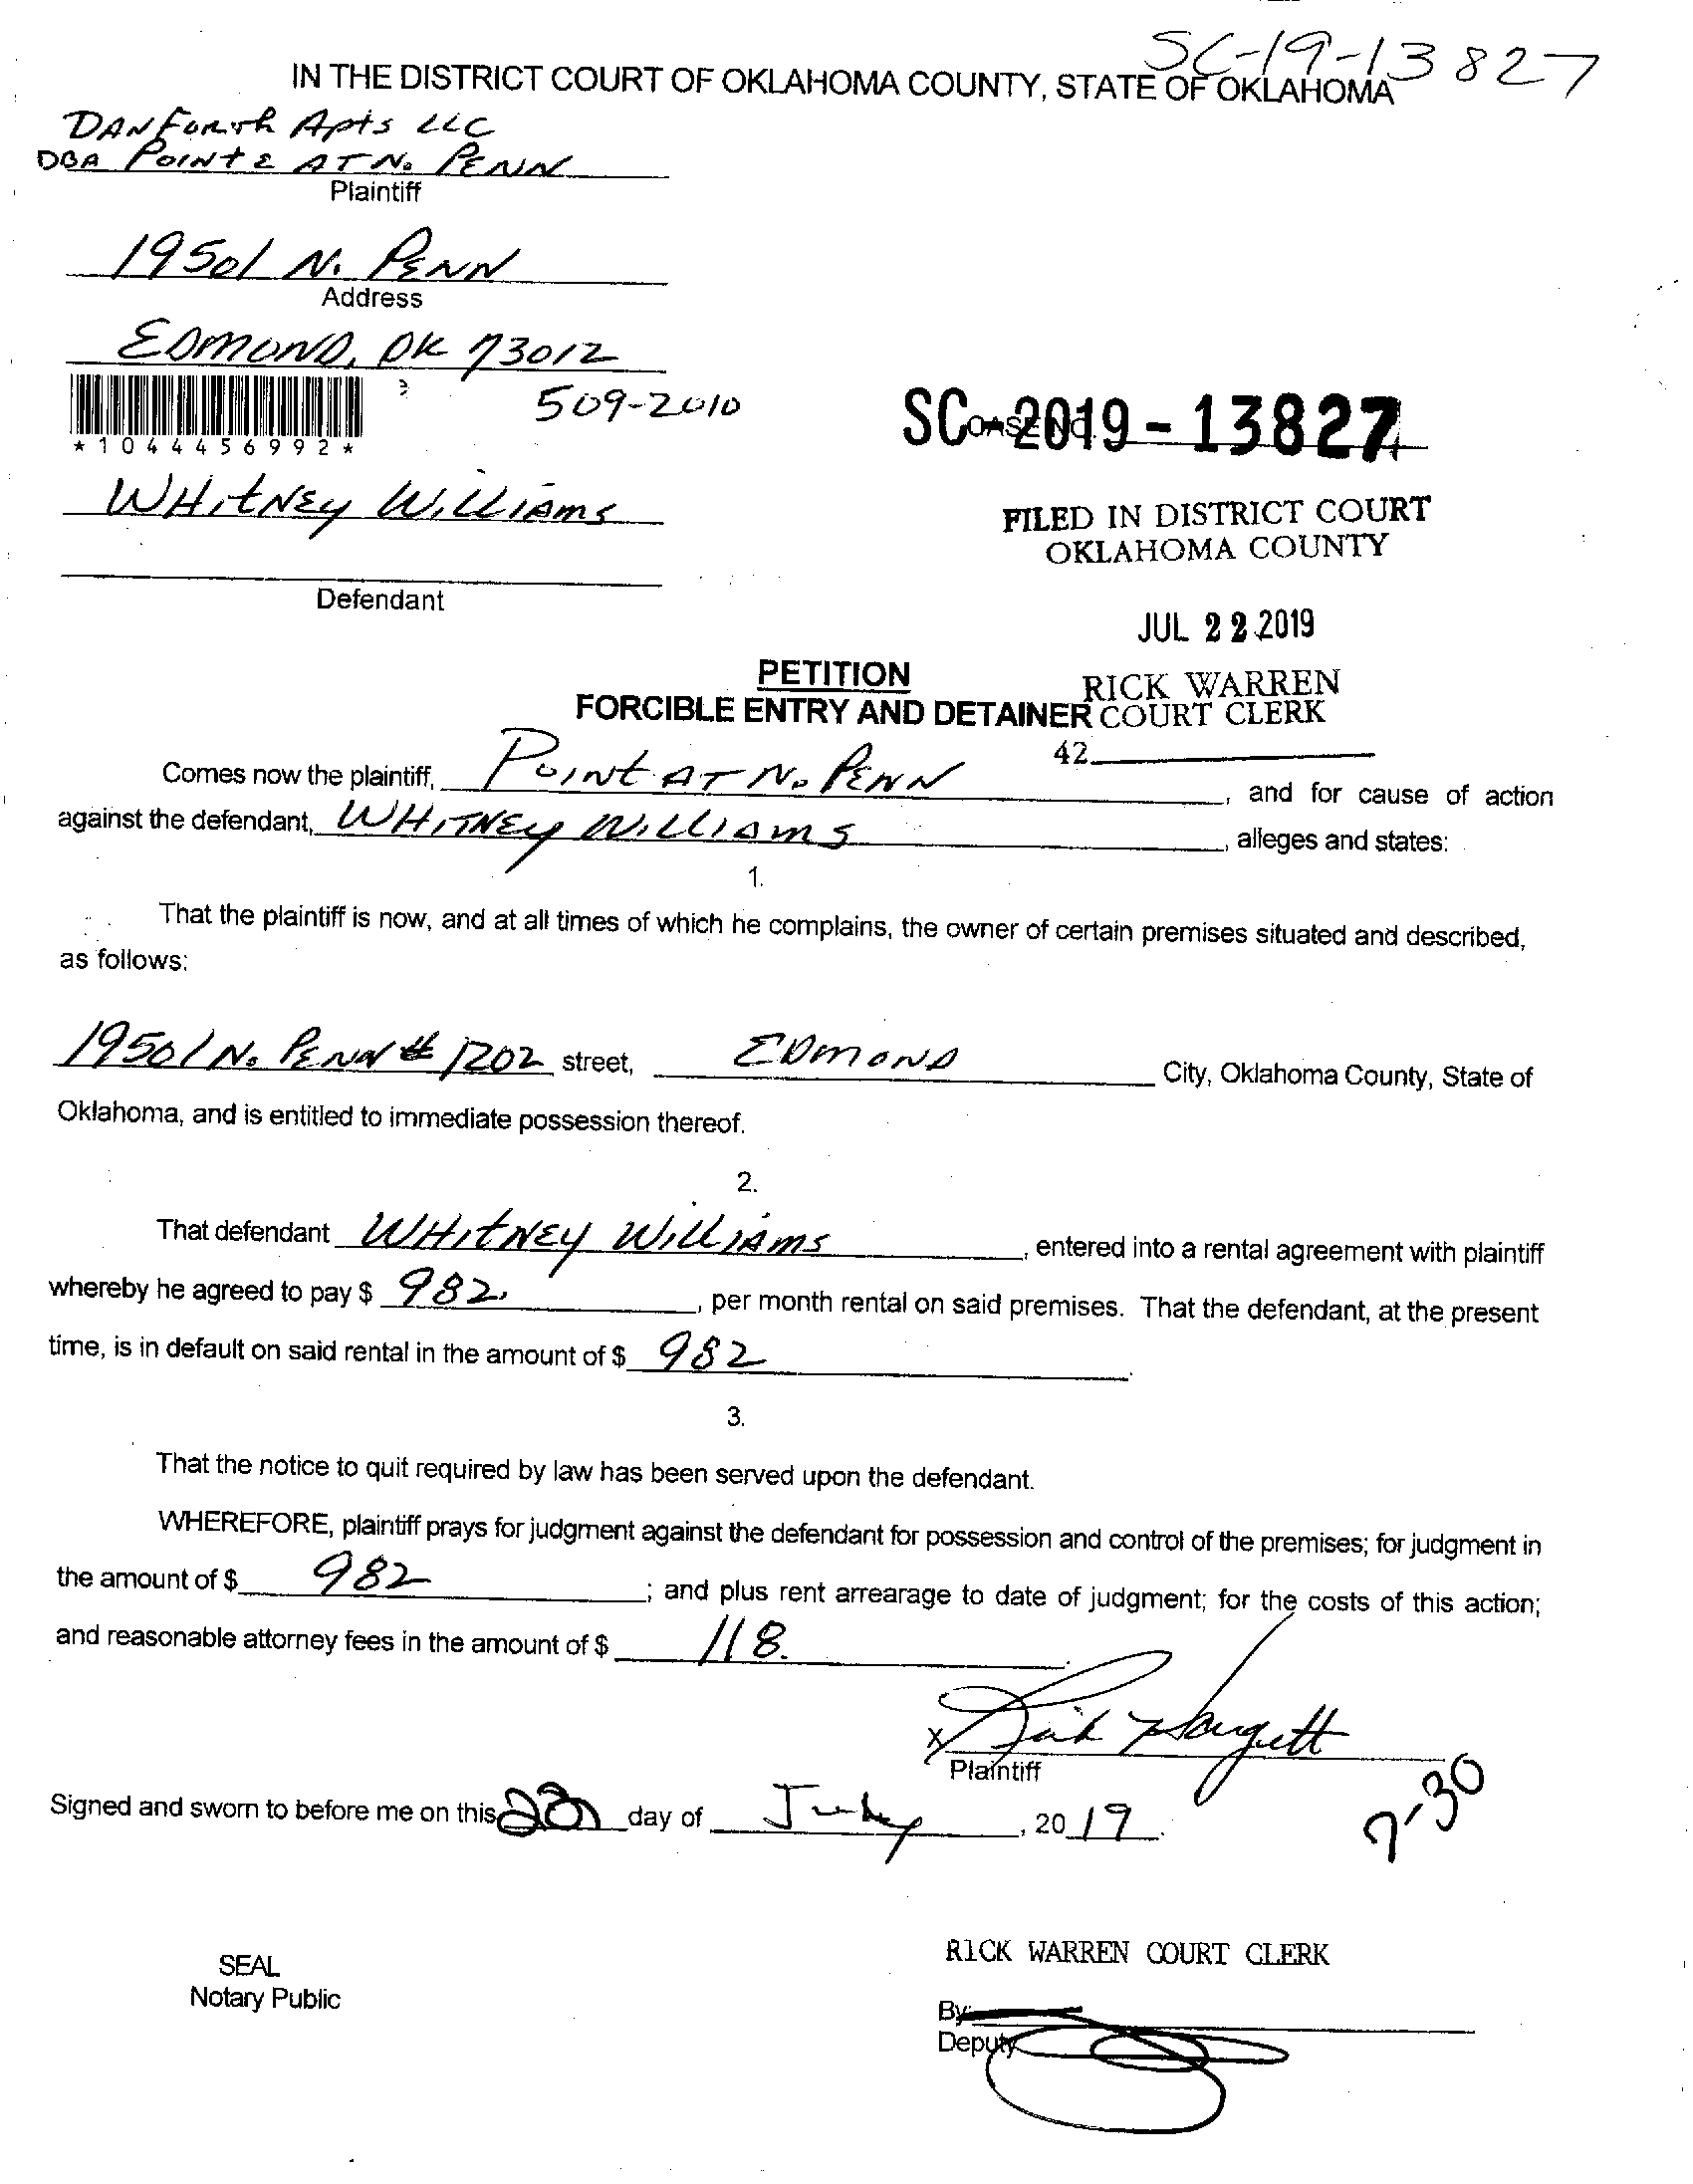 SC-19-13827
IN THE DISTRICT COURT OF OKLAHOMA COUNTY, STATE OF OKLAHOMA
DANForth Apts LLC
DBA POINtE AT No PENN
Plaintiff
19501 N. PENN
Address
EDMOND, OK 73012
509-2010
*1044456992*
SC-2019-13827
CASE NO.
WHitNEy WilliAms
FILED IN DISTRICT COURT
OKLAHOMA COUNTY
Defendant
JUL 22 2019
PETITION
RICK WARREN
FORCIBLE ENTRY AND DETAINER
COURT CLERK
42
Comes now the plaintiff, POINt AT No PENN, and for cause of action
against the defendant, WHITNEy WilliAms, alleges and states:
1.
That the plaintiff is now, and at all times of which he complains, the owner of certain premises situated and described,
as follows:
19501 No PENN # 1202 street, EDMOND City, Oklahoma County, State of
Oklahoma, and is entitled to immediate possession thereof.
2.
That defendant WHitNEy WilliAms, entered into a rental agreement with plaintiff
whereby he agreed to pay $ 982., per month rental on said premises. That the defendant, at the present
time, is in default on said rental in the amount of $ 982.
3.
That the notice to quit required by law has been served upon the defendant.
WHEREFORE, plaintiff prays for judgment against the defendant for possession and control of the premises; for judgment in
the amount of $ 982; and plus rent arrearage to date of judgment; for the costs of this action;
and reasonable attorney fees in the amount of $ 118.
X
Plaintiff
7-30
Signed and sworn to before me on this 22 day of July, 2019.
RICK WARREN COURT CLERK
SEAL
Notary Public
By:
Deputy